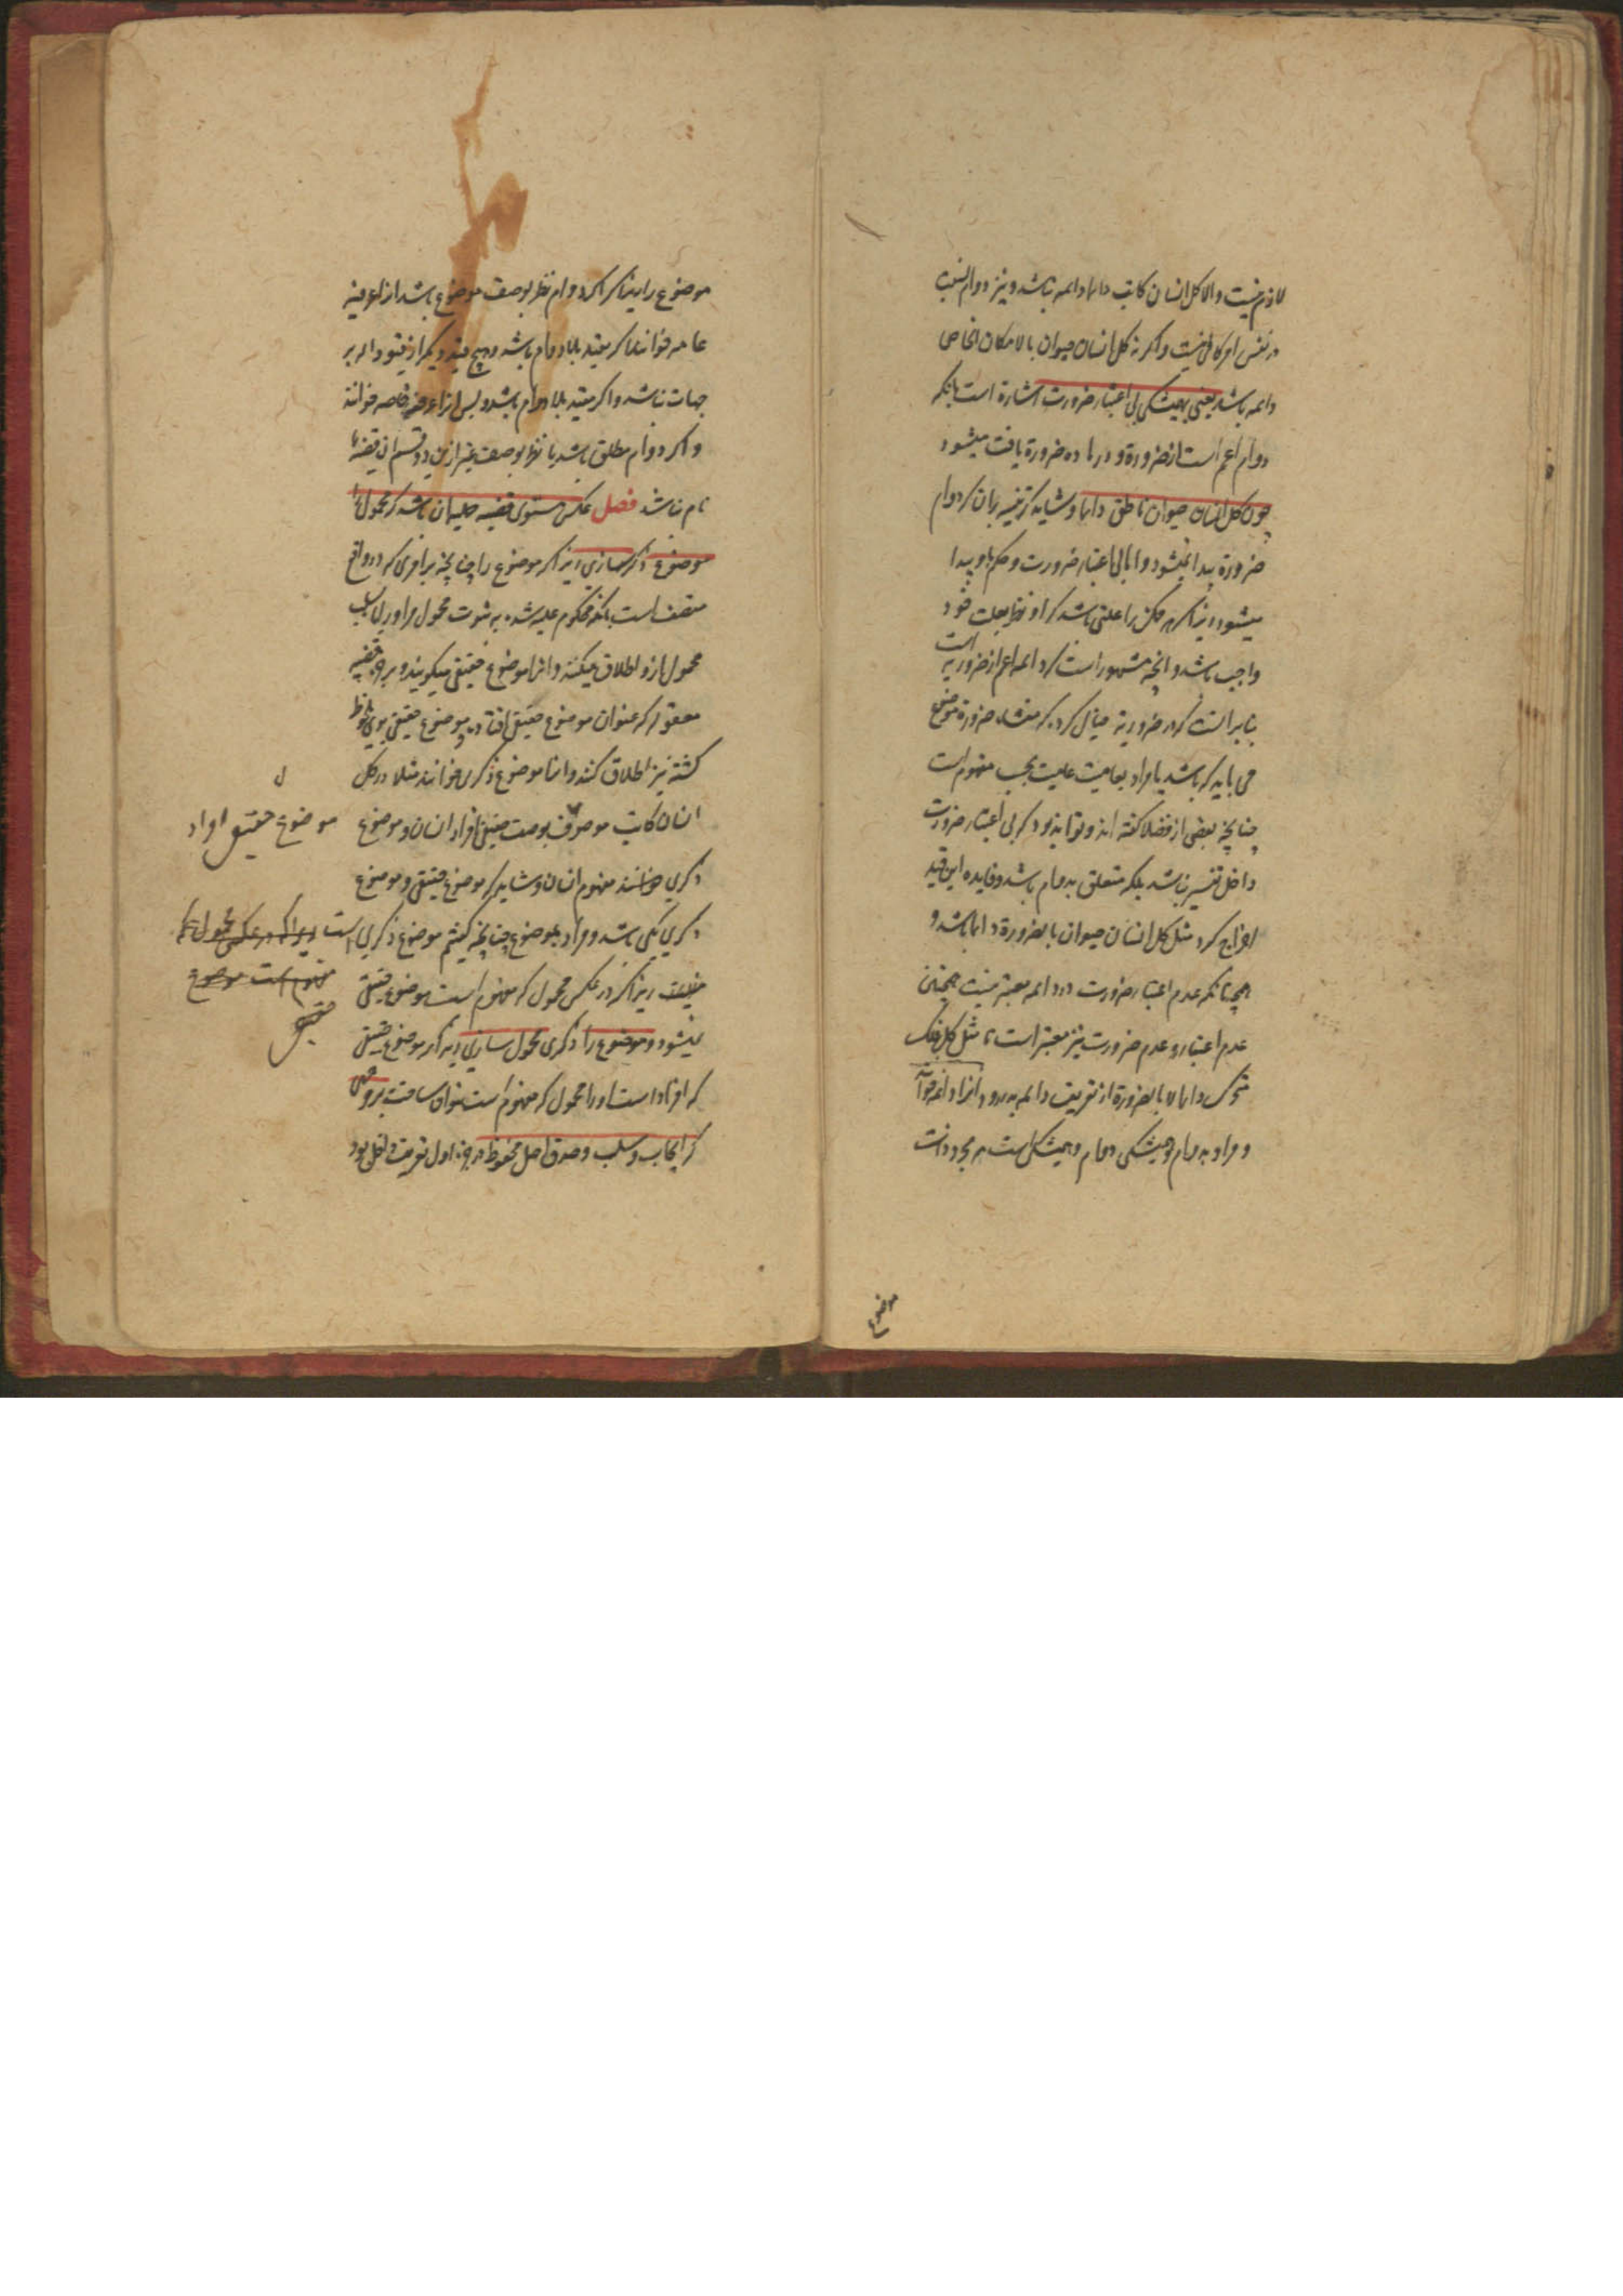 لازم نیست والا کل انسان کاتب دایما دائمه باشد و نیز دوام النسب
در نفس امر کافی نیست واکرنه کل انسان حیوان بالامکان الخاص
دائمه باشد یعنی بهمیشکی بی اعتبار ضرورت اشاره است بانکه
دوام اعم است از ضرورة و در ماده ضرورة یافت میشود
چون کل انسان حیوان ناطق دایما و شاید که تفسیر بان که دوام
ضرورة پیدا نمیشود و اما بی اعتبار ضرورت و حکم باو پیدا
میشود زیرا که هر ممکن را علتی باشد که او نظر بعلت خود
واجب باشد و انچه مشهور است که دائمه اعم از ضروریه است
بنابر انست که در ضروریه خیال کرده که منشاء ضرورة موضوع
می باید که باشد یا مراد بعامیت عامیت بحسب مفهوم است
چنانچه بعضی از فضلا کفته اند و تواند بود که بی اعتبار ضرورت
داخل تفسیر نباشد بلکه متعلق به دوام باشد و فایده این قید
اخراج کرد مثل کل انسان حیوان بالضرورة دایما باشد و
همچنانکه عدم اعتبار ضرورت در دائمه معتبر نیست همچنین
عدم اعتبار و عدم ضرورت نیز معتبر است تا مثل کل فلک
متحرک دایما لا بالضرورة از تعریف دائمه بدر رود و انرا دائمه خوانند
و مراد به دوام و همیشکی دوام و همیشکی است هر مجرد ذات
موضوع
موضوع را زیرا که اکر دوام نظر بوصف موضوع باشد انرا عرفیه
عامه خوانند اکر مقید بلا دوام باشد و هیچ قید دیکر از قیود دائر بر
جهات نباشد و اکر مقید بلا دوام باشد و بس انرا عرفیه خاصه خوانند
و اکر دوام مطلق باشد یا نظر بوصف غیر ازین دو قسم ان قضیه را
نام نباشد فصل عکس مستوی قضیه حملیه ان باشد که محمول را
موضوع ذکر سازی زیرا که موضوع را چنانچه بر افرادی که در واقع
متصف است بانکه محکوم علیه شده به ثبوت محمول مر او را یا سلب
محمول ازو اطلاق میکنند و انرا موضوع حقیقی میکویند و بر جزء قضیه
معقول که عنوان موضوع حقیقی افتاده و موضوع حقیقی بوی ملحوظ
کشته نیز اطلاق کنند و انرا موضوع ذکری خوانند مثلا در کل
انسان کاتب موصوف بوصف حقیقی افراد انسان و موضوع
موضوع حقیقی افراد
ذکری خوانند مفهوم انسان و شاید که موضوع حقیقی و موضوع
ذکری یکی باشد و مراد بموضوع چنانچه کفتیم موضوع ذکری است زیرا که در عکس محمول که
حقیقت زیرا که در عکس محمول که مفهوم است موضوع حقیقی
مفهوم است موضوع
حقیقی
نمیشود و موضوع را ذکری محمول سازی زیرا که موضوع حقیقی
که افراد است او را محمول که مفهوم است نتوان ساخت بر وجهی
که ایجاب و سلب و صدق اصل محفوظ ماند جزء اول تعریف داخل بود